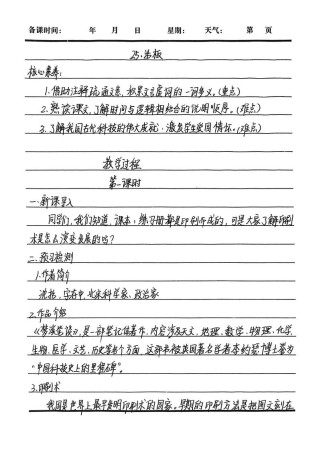 备课时间： 年 月 日 星期： 天气： 第 页
25.活板
核心素养：
1.借助注解疏通文意，积累文言虚词的一词多义。(重点)
2.熟读课文，了解时间与逻辑相结合的说明顺序。(难点)
3.了解我国古代科技的伟大成就，激发学生爱国情怀。(难点)
教学过程
第一课时
一.新课导入
同学们，我们知道，课本、练习册都是印刷而成的，可是大家了解印刷
术是怎么演变发展的吗？
二.预习检测
1.作者简介
沈括，字存中，北宋科学家、政治家
2.作品介绍
《梦溪笔谈》，是一部笔记体著作，内容涉及天文，地理，数学，物理，化学，
生物，医学，文艺，历史等各个方面，这部书被英国著名学者李约瑟博士誉为
"中国科技史上的里程碑"。
3.印刷术
我国是世界上最早发明印刷术的国家。早期的印刷方法是把图文刻在